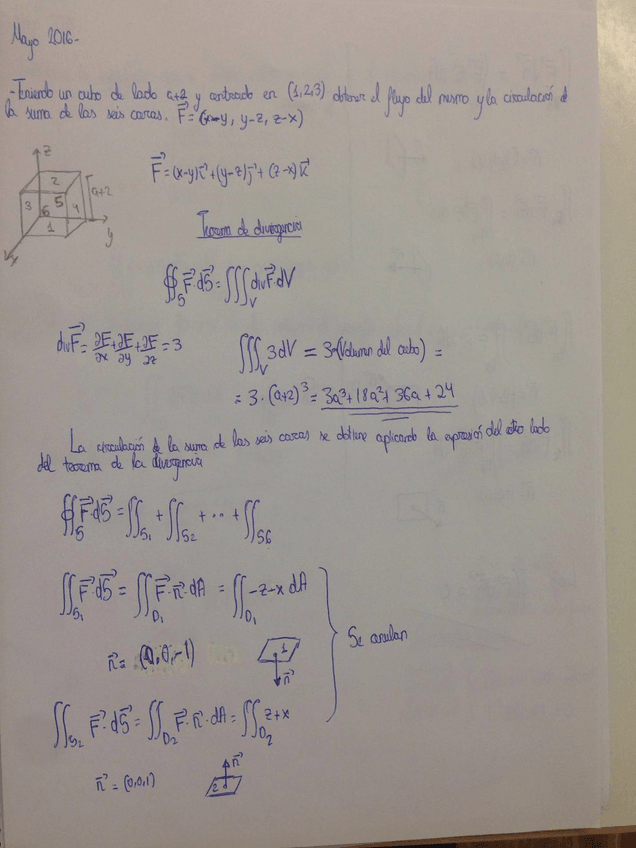 Mayo 2016-
-Teniendo un cubo de lado a+2 y centrado en (1,2,3) obtener el flujo del mismo y la circulación de
la suma de las seis caras. F⃗ = (x-y, y-z, z-x)
z
2
3 5 4 a+2
6
1
y
x
F⃗ = (x-y)i⃗ + (y-z)j⃗ + (z-x)k⃗
Teorema de divergencia
∯_S F⃗·dS⃗ = ∭_V div F⃗·dV
div F⃗ = ∂F/∂x + ∂F/∂y + ∂F/∂z = 3
∭_V 3dV = 3·(Volumen del cubo) =
= 3·(a+2)³ = 3a³+18a²+36a+24
La circulación de la suma de las seis caras se obtiene aplicando la expresión del otro lado
del teorema de la divergencia
∯_S F⃗·dS⃗ = ∬_S1 + ∬_S2 + ... + ∬_S6
∬_S1 F⃗·dS⃗ = ∬_D1 F⃗·n⃗·dA = ∬_D1 -z-x dA
n⃗ = (0,0,-1)
1
n⃗
Se anulan
∬_S2 F⃗·dS⃗ = ∬_D2 F⃗·n⃗·dA = ∬_D2 z+x
n⃗ = (0,0,1)
n⃗
2